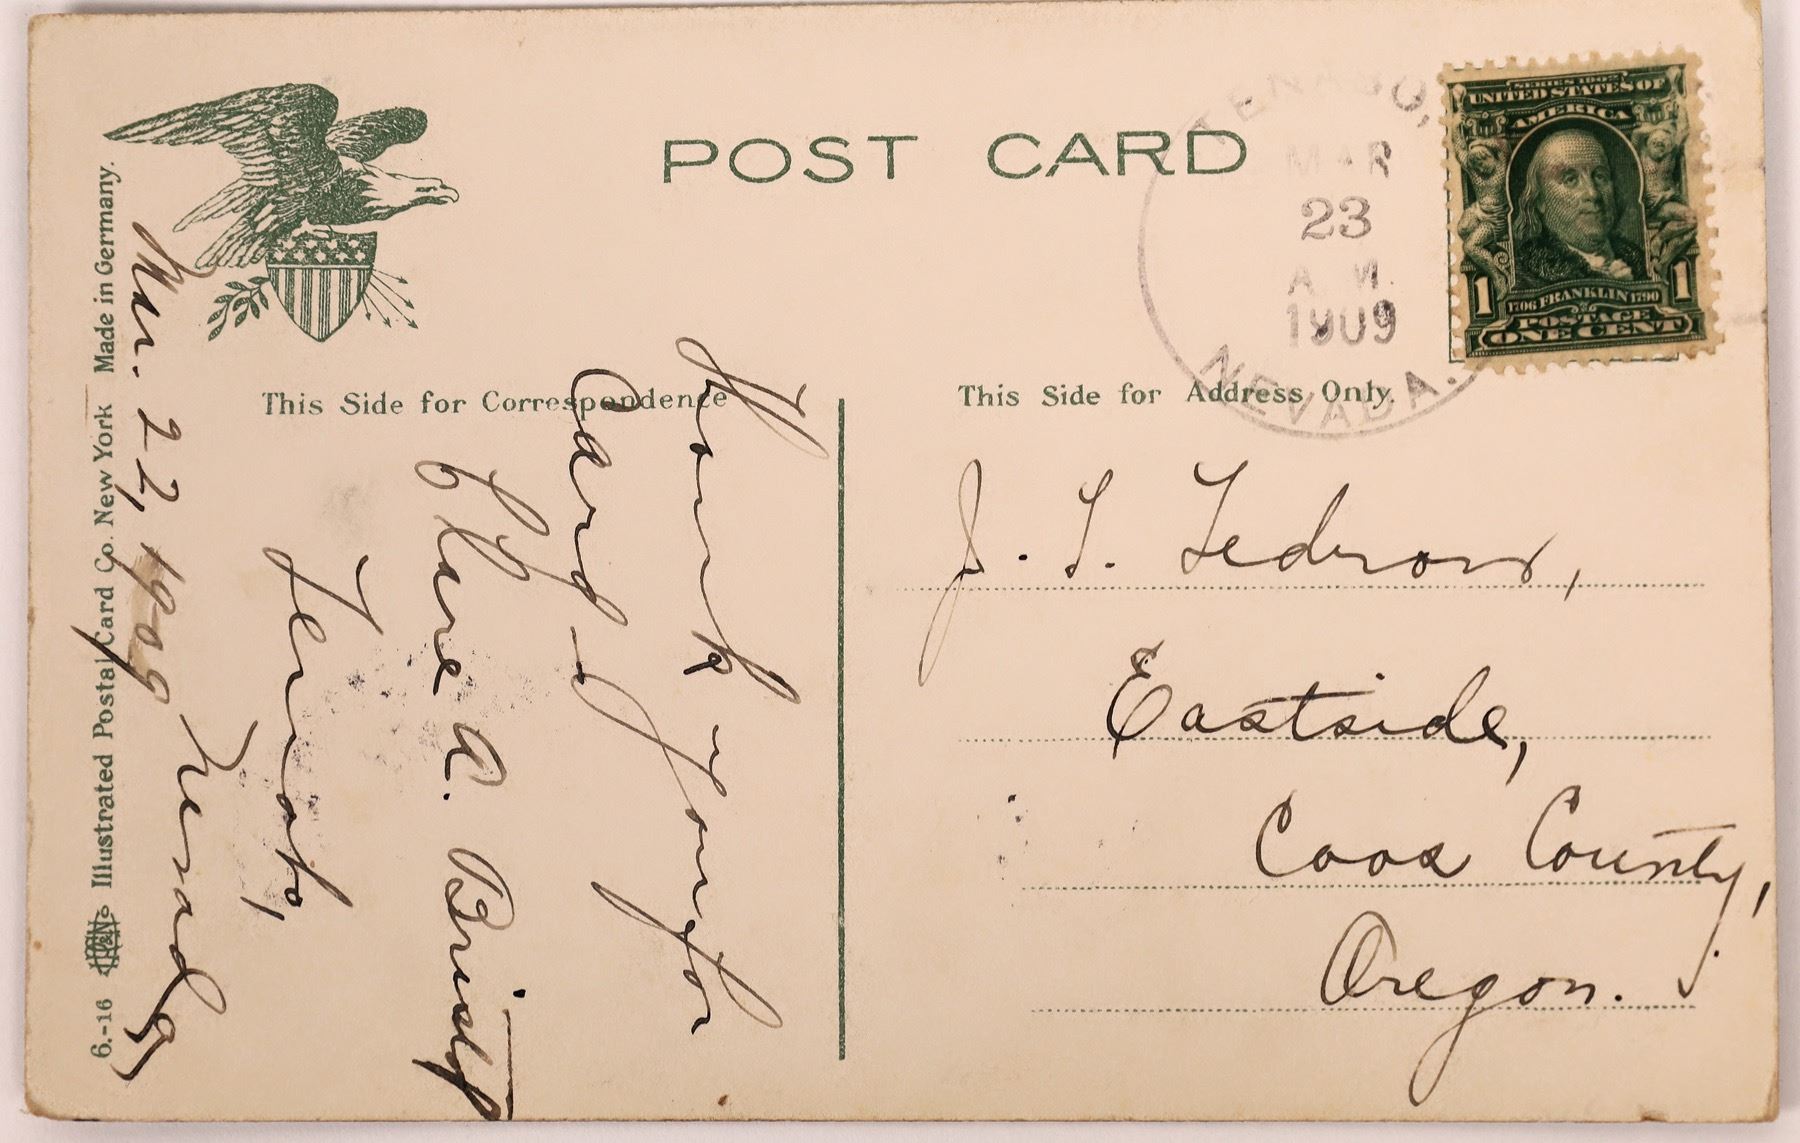 POST CARD
TENABO,
MAR
23
A.M.
1909
NEVADA.
SERIES 1902
UNITED STATES OF
AMERICA
1706 FRANKLIN 1790
1 1
POSTAGE
ONE CENT
This Side for Correspondence
This Side for Address Only.
Thank you for
Card -
Clare A. Bristol
Tenabo,
Nevada,
Mar. 22, 1909
J. T. Tedrow,
Eastside,
Coos County,
Oregon.
6.-16 Illustrated Postal Card Co. New York Made in Germany.